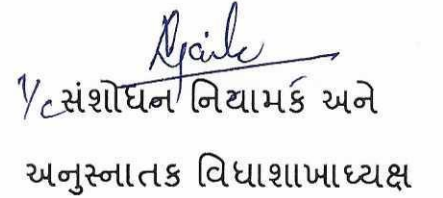 I/c સંશોધન નિયામક અને
અનુસ્નાતક વિધાશાખાધ્યક્ષ